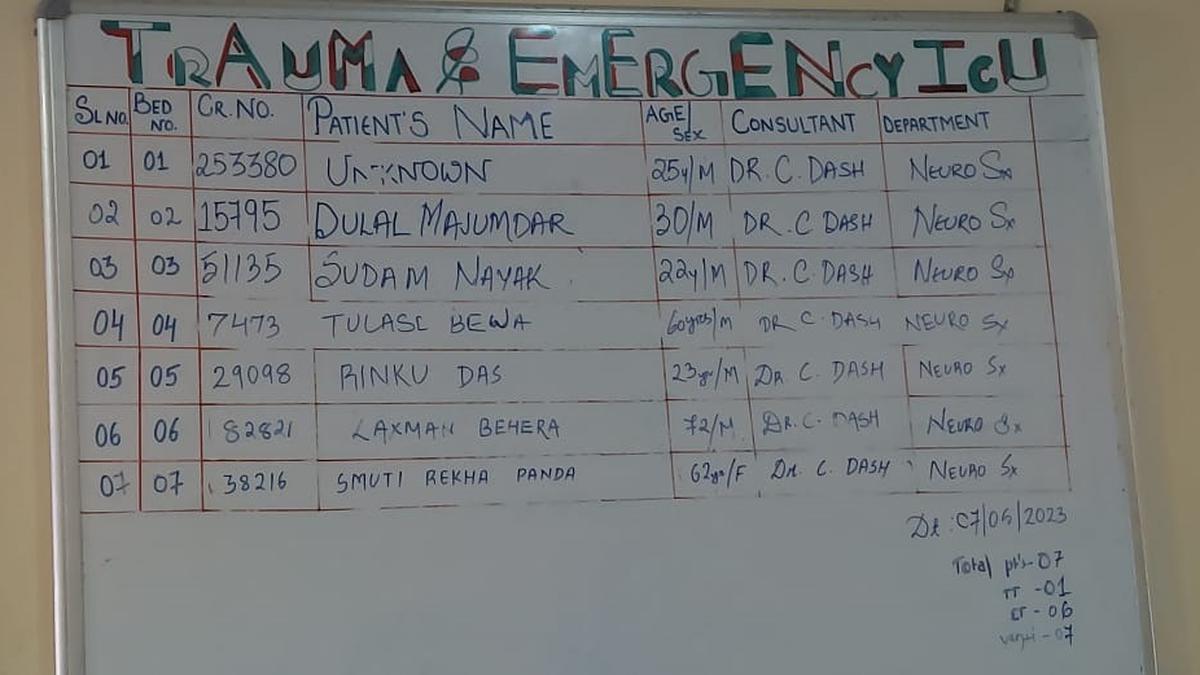 TRAUMA & EMERGENCY ICU
SL NO. BED NO. CR. NO. PATIENT'S NAME AGE/SEX CONSULTANT DEPARTMENT
01 01 253380 UNKNOWN 25y/M DR. C. DASH NEURO Sx
02 02 15795 DULAL MAJUMDAR 30/M DR. C DASH NEURO Sx
03 03 51135 SUDAM NAYAK 22y/M DR. C. DASH NEURO Sx
04 04 7473 TULASI BEWA 60yrs/M DR C. DASH NEURO Sx
05 05 29098 RINKU DAS 23yr/M DR. C. DASH NEURO Sx
06 06 82821 LAXMAN BEHERA 72/M DR. C. DASH NEURO Sx
07 07 38216 SMUTI REKHA PANDA 62yr/F DR. C. DASH NEURO Sx
Dt : 07/05/2023
Total pt's - 07
TT - 01
ET - 06
- 07